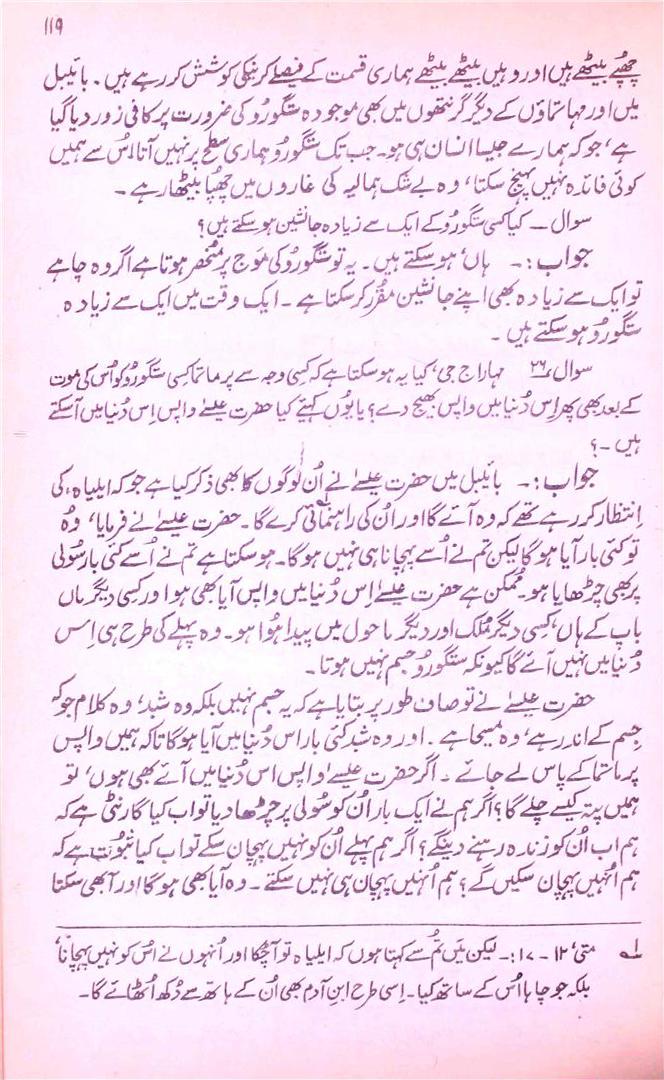 ۱۱۹
چھُپے بیٹھے ہیں اور وہیں بیٹھے بیٹھے ہماری قسمت کے فیصلے کرنیکی کوشش کر رہے ہیں۔ بائیبل
میں اور مہاتماؤں کے دیگر گرنتھوں میں بھی موجودہ ستگورُو کی ضرورت پر کافی زور دیا گیا
ہے، جو کہ ہمارے جیسا انسان ہی ہو۔ جب تک ستگورُو ہماری سطح پر نہیں آتا اُس سے ہمیں
کوئی فائدہ نہیں پہنچ سکتا، وہ بے شک ہمالیہ کی غاروں میں چھُپا بیٹھا رہے۔
سوال ــ کیا کسی ستگورُو کے ایک سے زیادہ جانشین ہو سکتے ہیں؟
جواب :۔ ہاں، ہو سکتے ہیں۔ یہ تو ستگورُو کی مَوج پر مُنحصر ہوتا ہے اگر وہ چاہے
تو ایک سے زیادہ بھی اپنے جانشین مقرّر کر سکتا ہے۔ ایک وقت میں ایک سے زیادہ
ستگورُو ہو سکتے ہیں۔
سوال ۲۶ مہاراج جی، کیا یہ ہو سکتا ہے کہ کسی وجہ سے پرماتما کسی ستگورُو کو اُس کی موت
کے بعد بھی پھر اِس دُنیا میں واپس بھیج دے؟ یا یُوں کہیئے کیا حضرت عیسےٰ واپس اِس دُنیا میں آ سکتے
ہیں ۔؟
جواب :۔ بائیبل میں حضرت عیسےٰ نے اُن لوگوں کا بھی ذکر کیا ہے جو کہ ایلیاہ کی
اِنتظار کر رہے تھے کہ وہ آئے گا اور اُن کی راہنمائی کرے گا۔ حضرت عیسےٰ نے فرمایا، وُہ
تو کئی بار آیا ہو گا لیکن تم نے اُسے پہچانا ہی نہیں ہو گا۔ ہو سکتا ہے تم نے اُسے کئی بار سُولی
پر بھی چڑھایا ہو۔ مُمکن ہے حضرت عیسےٰ اِس دُنیا میں واپس آیا بھی ہو اور کسی دیگر ماں
باپ کے ہاں، کسِی دیگر مُلک اور دیگر ماحول میں پیدا ہُوا ہو۔ وہ پہلے کی طرح ہی اِس
دُنیا میں نہیں آئے گا کیونکہ ستگورُو جسم نہیں ہوتا۔
حضرت عیسےٰ نے تو صاف طور پر بتایا ہے کہ یہ جسم نہیں بلکہ وہ شبد، وہ کلام جو کہ
جسم کے اندر ہے، وہ مسیحا ہے۔ اور وہ شبد کئی بار اس دُنیا میں آیا ہو گا تاکہ ہمیں واپس
پرماتما کے پاس لے جائے۔ اگر حضرت عیسےٰ واپس اس دُنیا میں آئے بھی ہوں، تو
ہمیں پتہ کیسے چلے گا؟ اگر ہم نے ایک بار اُن کو سُولی پر چڑھا دیا تو اب کیا گارنٹی ہے کہ
ہم اب اُن کو زندہ رہنے دینگے؟ اگر ہم پہلے اُن کو نہیں پہچان سکے تو اب کیا ثبُوت ہے کہ
ہم اُنہیں پہچان سکیں گے؟ ہم اُنہیں پہچان ہی نہیں سکتے۔ وہ آیا بھی ہو گا اور آ بھی سکتا
۱ متی، ۱۲ ـ ۱۷ :۔ لیکن مَیں تُم سے کہتا ہوں کہ ایلیاہ تو آ چُکا اور اُنہوں نے اُس کو نہیں پہچانا،
بلکہ جو چاہا اُس کے ساتھ کیا۔ اِسی طرح ابنِ آدم بھی اُن کے ہاتھ سے دُکھ اُٹھائے گا۔